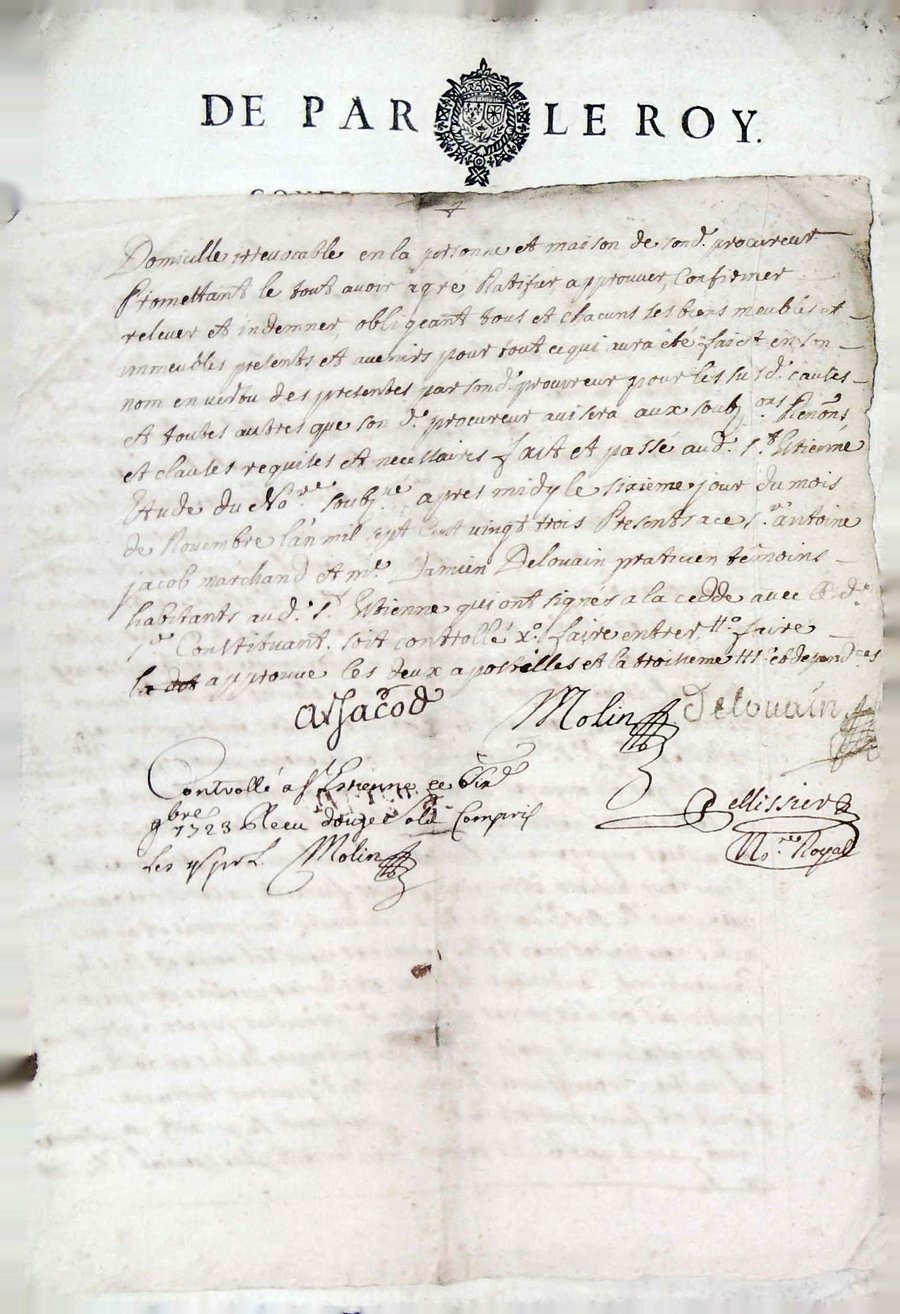 DE PAR LE ROY.
Domicille irrevocable en la personne et maison de sond. procureur
Promettant le tout avoir agré, Ratifier approuver, Confirmer
relever et indemner, obligeant tous et chacuns ses biens meubles et
immeubles presents et avenirs pour tout ce qui aura été faict en son
nom en vertu des presentes par sond. procureur pour les susd. causes
et toutes autres que son d. procureur avisera aux soubjons Renons,
et clauses requises et necessaires fait et passé aud. st. Etienne
Etude du Nore. soubne. apres midy le sixieme jour du mois
de Novembre l'an mil sept cent vingt trois Presents a ce sr. antoine
jacob marchand et me. Damien Delouain praticien temoins
habitants aud. st. Etienne qui ont signés a la cedde avec led.
sr. Constituant. soit controllé xo. faire entrer, tto. faire
approuve les deux apostilles et la troisieme
arJacod Molin Delouvain
Controllé a st. Estienne ce
9bre 1723 Receu douze sols Compris
Les Molin
Pellissier
Nore. Royal